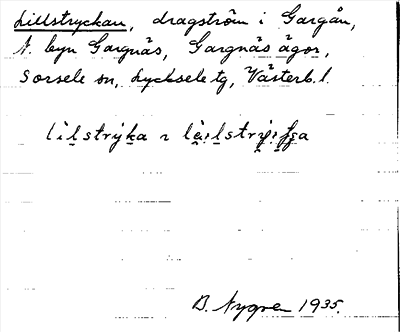 Lillstryckan, dragström i Gargån,
N. byn Gargnäs, Gargnäs ägor,
Sorsele sn, Lycksele tg, Västerb. l.
B. Nygren 1935.